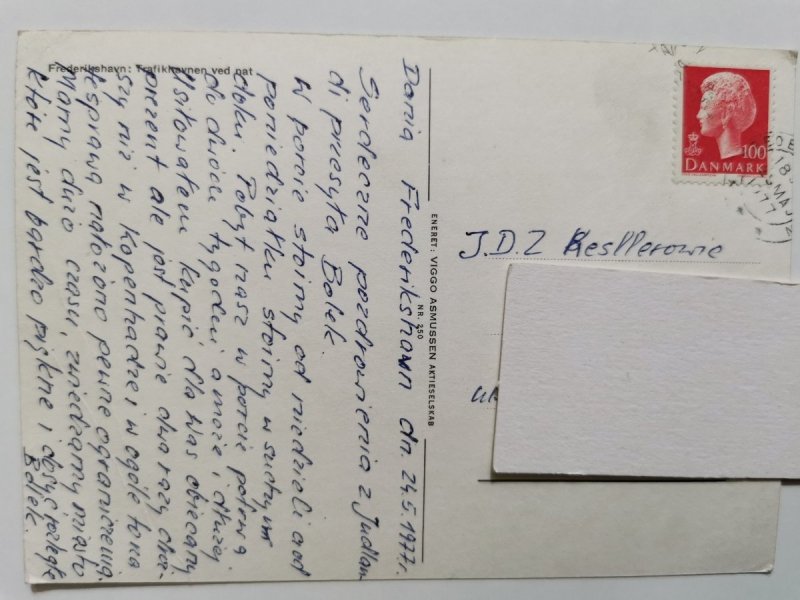 Frederikshavn: Trafikhavnen ved nat
Dania Frederikshavn dn. 24.5.1977r.
Serdeczne pozdrowienia z Judlan
di przesyła Bolek.
W porcie stoimy od niedzieli a od
poniedziałku stoimy w suchym
doku. Pobyt nasz w porcie potrwa
do dwóch tygodni a może i dłużej
Usiłowałem kupić dla Was obiecany
prezent ale jest prawie dwa razy droż-
szy niż w Kopenhadze i w ogóle to na
tę sprawą nałożono pewne ograniczenia.
Mamy dużo czasu, zwiedzamy miasto
które jest bardzo piękne i dosyć rozległe
Bolek.
ENERET: VIGGO ASMUSSEN AKTIESELSKAB
NR. 250
100
DANMARK
J.D.Z Kestlerowie